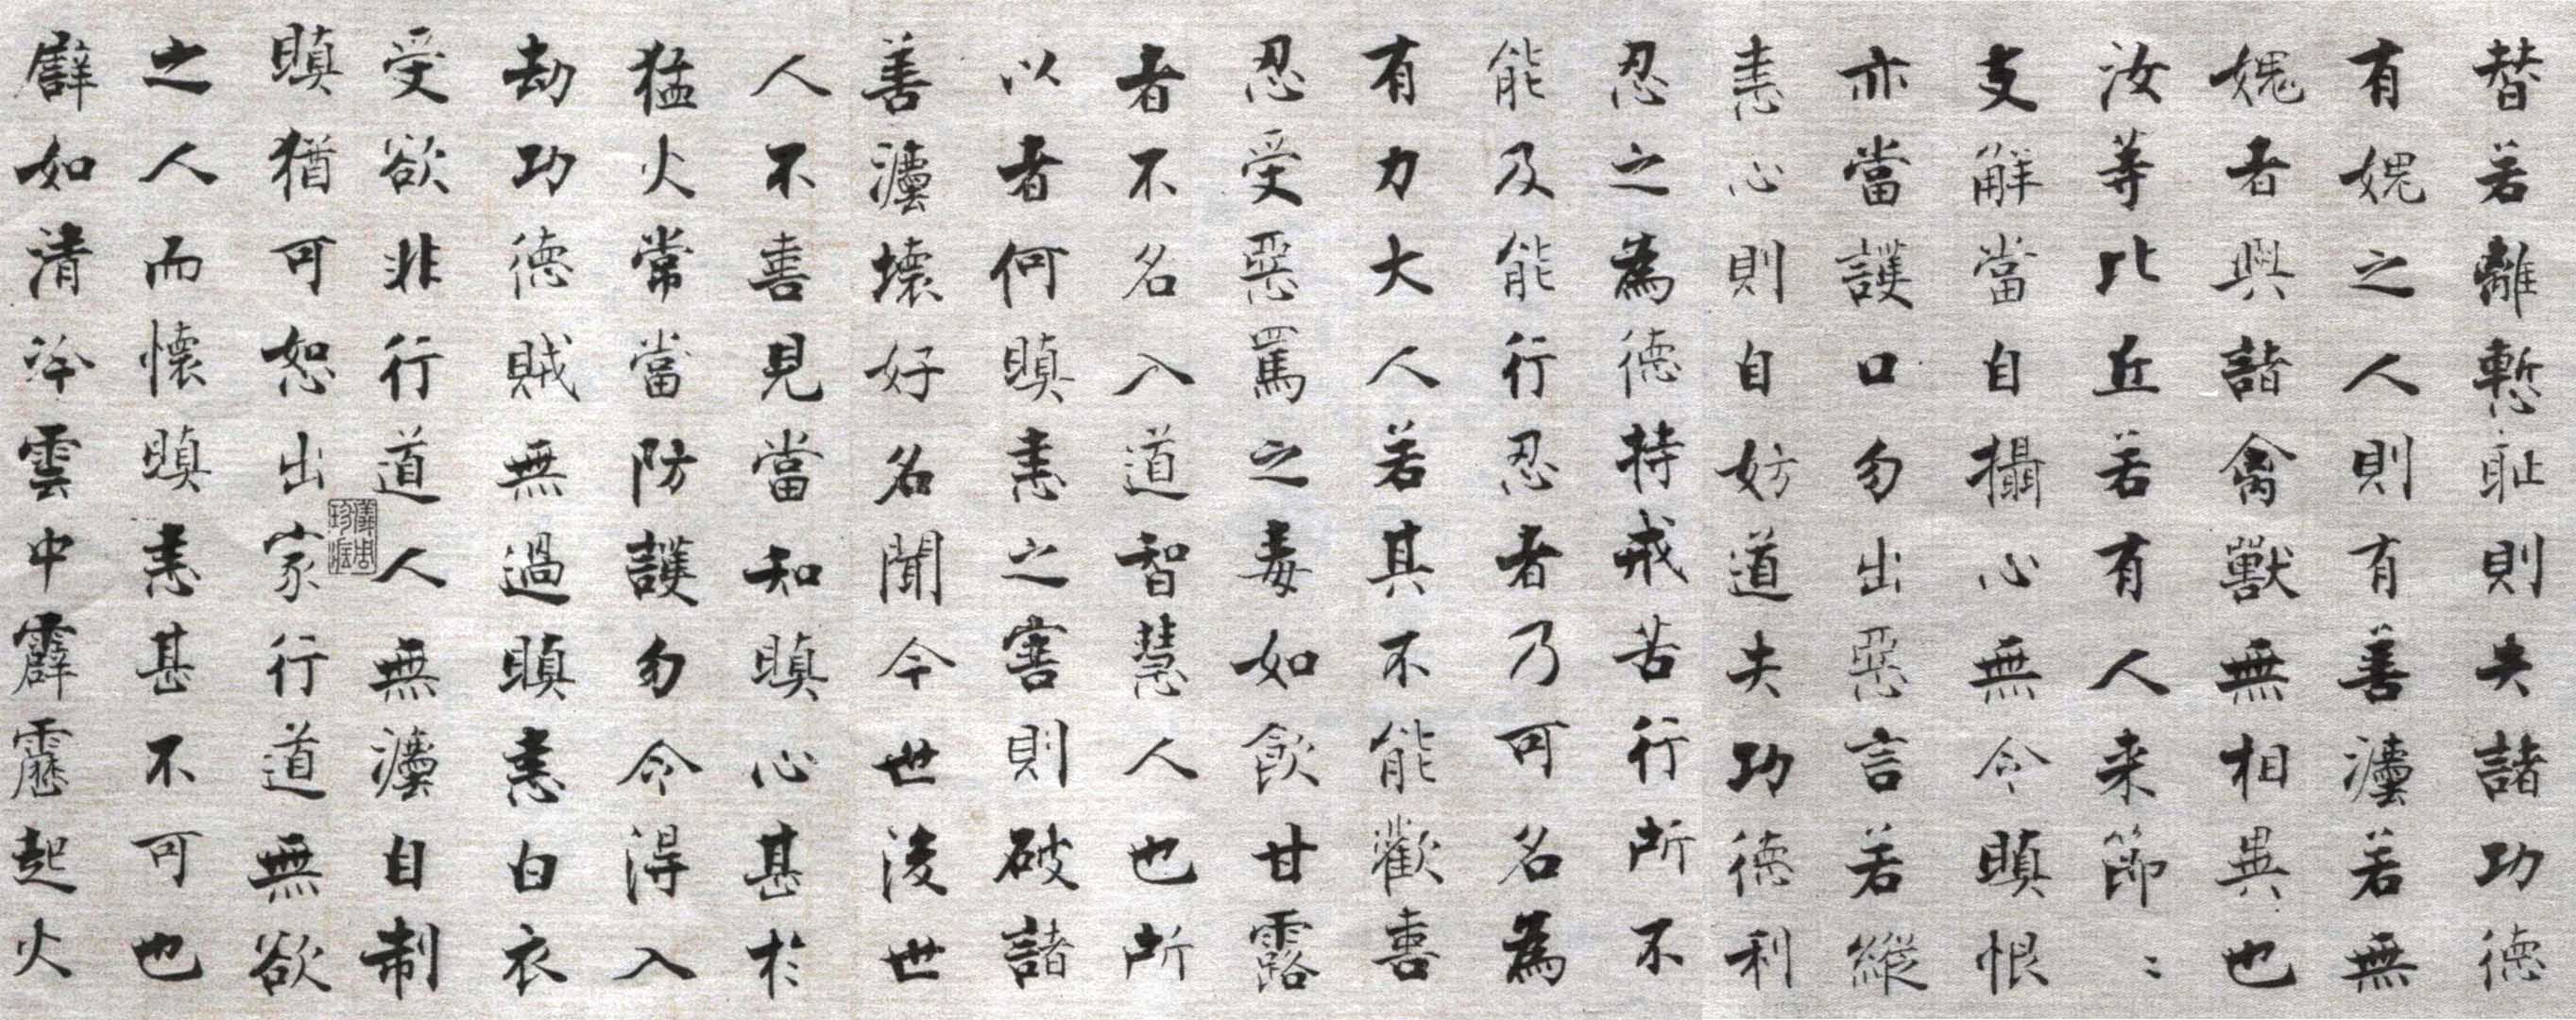 替若離慙耻則失諸功德
有媿之人則有善灋若無
媿者與諸禽獸無相異也
汝等比丘若有人来節〻
支解當自攝心無令瞋恨
亦當護口勿出惡言若縱
恚心則自妨道失功德利
忍之為德持戒苦行所不
能及能行忍者乃可名為
有力大人若其不能歡喜
忍受惡罵之毒如飲甘露
者不名入道智慧人也所
以者何瞋恚之害則破諸
善灋壞好名聞今世後世
人不喜見當知瞋心甚於
猛火常當防護勿令得入
劫功德賊無過瞋恚白衣
受欲非行道人無灋自制
瞋猶可恕出家行道無欲
之人而懷瞋恚甚不可也
譬如清冷雲中霹靂起火
儀周珍藏